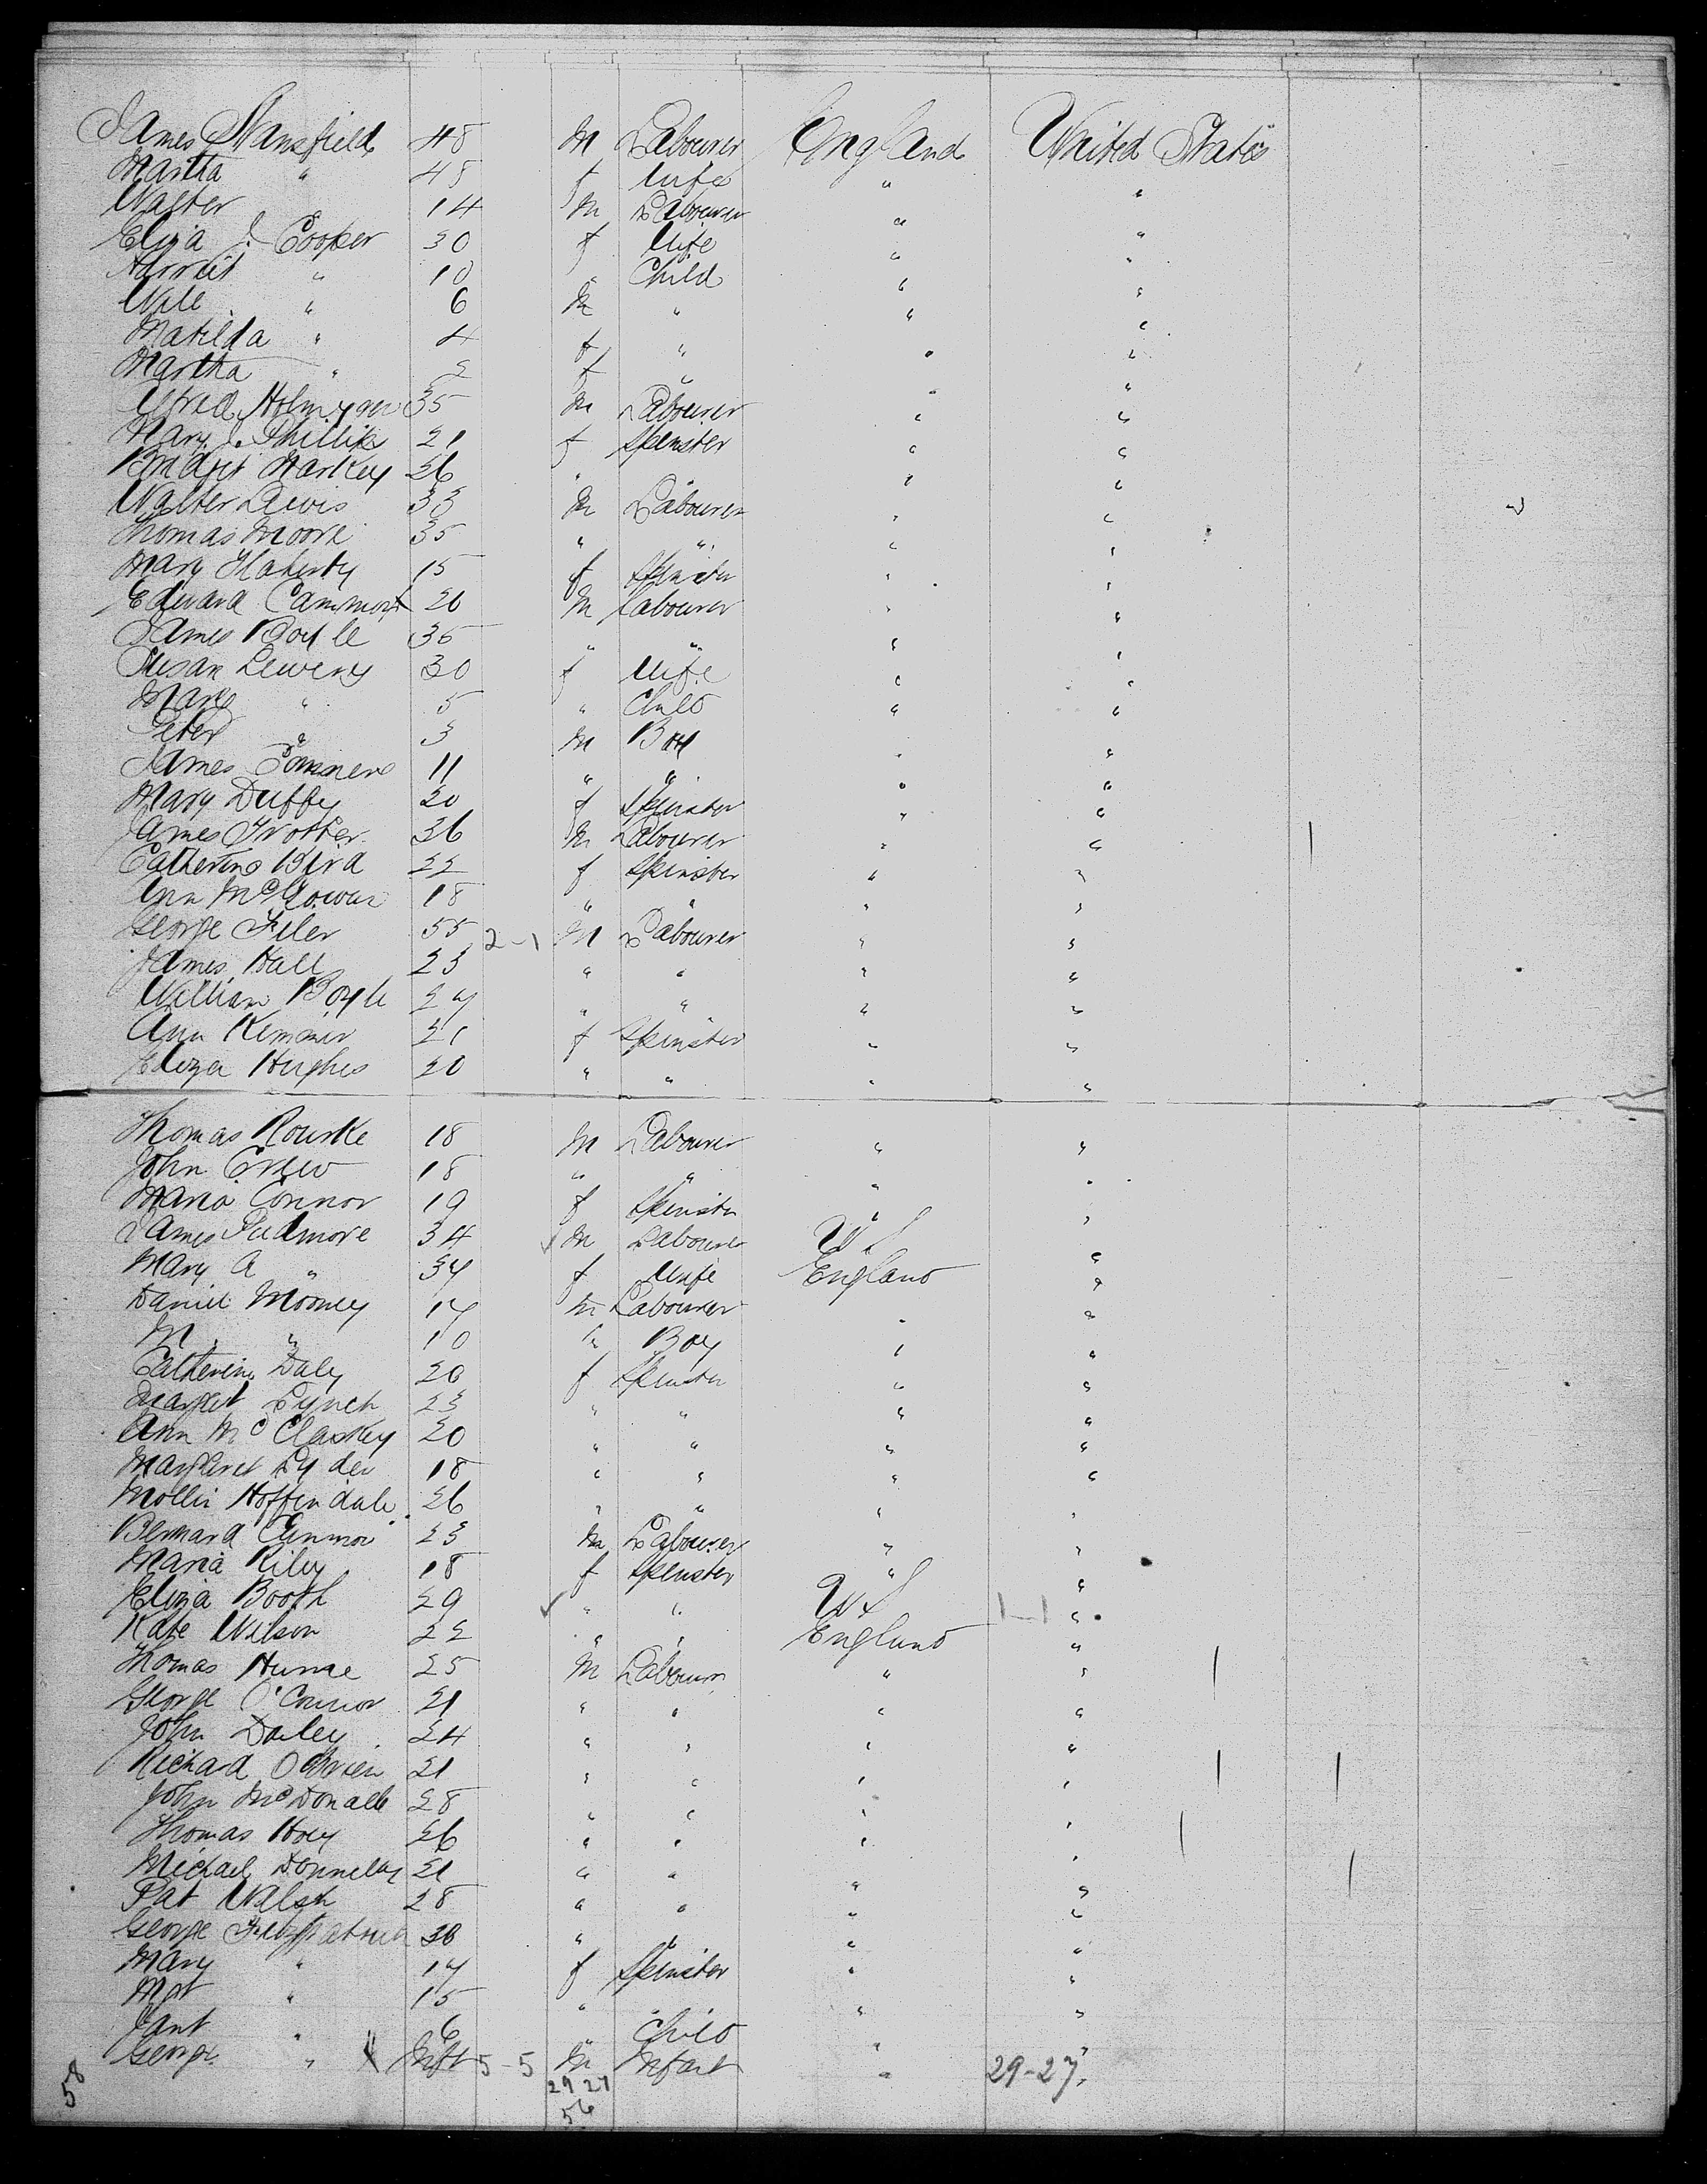 James Stansfield 48 M Labourer England United States
Martha " 48 f Wife " "
Walter " 14 M Labourer " "
Eliza J. Cooper 30 f Wife " "
Harriet " 10 " Child " "
Will " 6 M " " "
Matilda " 4 f " " "
Martha " 2 f " " "
Alfred 35 M Labourer " "
Mary J. Phillips 21 f Spinster " "
Bridget Harkey 26 " " "
Walter Lewis 33 M Labourer " "
Thomas Moore 35 " " " "
Mary Flaherty 15 f Spinster " "
Edward 20 M Labourer " "
James Boyle 35 " " " "
Susan Lewery 30 f Wife " "
Mary " 5 " Child " "
Peter " 3 M Boy " "
James 11 " " " "
Mary Duffy 20 f Spinster " "
James Trotter 36 M Labourer " "
Catherine Bird 22 f Spinster " "
Ann McGowan 18 " " " "
George Filer 55 2-1 M Labourer " "
James Hall 23 " " " "
William Boyle 24 " " " "
Ann 21 f Spinster " "
Eliza Hughes 20 " " " "
Thomas Rourke 18 M Labourer " "
John Crew 18 " " " "
Maria Connor 19 f Spinster " "
James Pudmore 34 ✓ M Labourer US "
Mary A " 34 f Wife England "
Daniel Mooney 14 M Labourer " "
M. " 10 " Boy " "
Catherine Daly 20 f Spinster " "
Margret Lynch 23 " " " "
Ann McClaskey 20 " " " "
Margaret Lyden 18 " " " "
Mollie Hoffendale 26 " " " "
Bernard 23 M Labourer " "
Maria Riley 18 f Spinster " "
Eliza Booth 29 ✓ " " US 1-1 "
Kate Wilson 22 " " England "
Thomas Hume 25 M Labourer " "
George O'Connor 21 " " " "
John Daley 24 " " " "
Richard OBrien 21 " " " "
John McDonald 28 " " " "
Thomas Hoey 26 " " " "
Michael Donnelly 21 " " " "
Pat Walsh 28 " " " "
George Fitzpatrick 30 " " " "
Mary " 14 f Spinster " "
Mgt " 15 " " "
Jant " 6 " Child " "
George " Inft 5-5 M Infant " 29-27
29 27
56
58